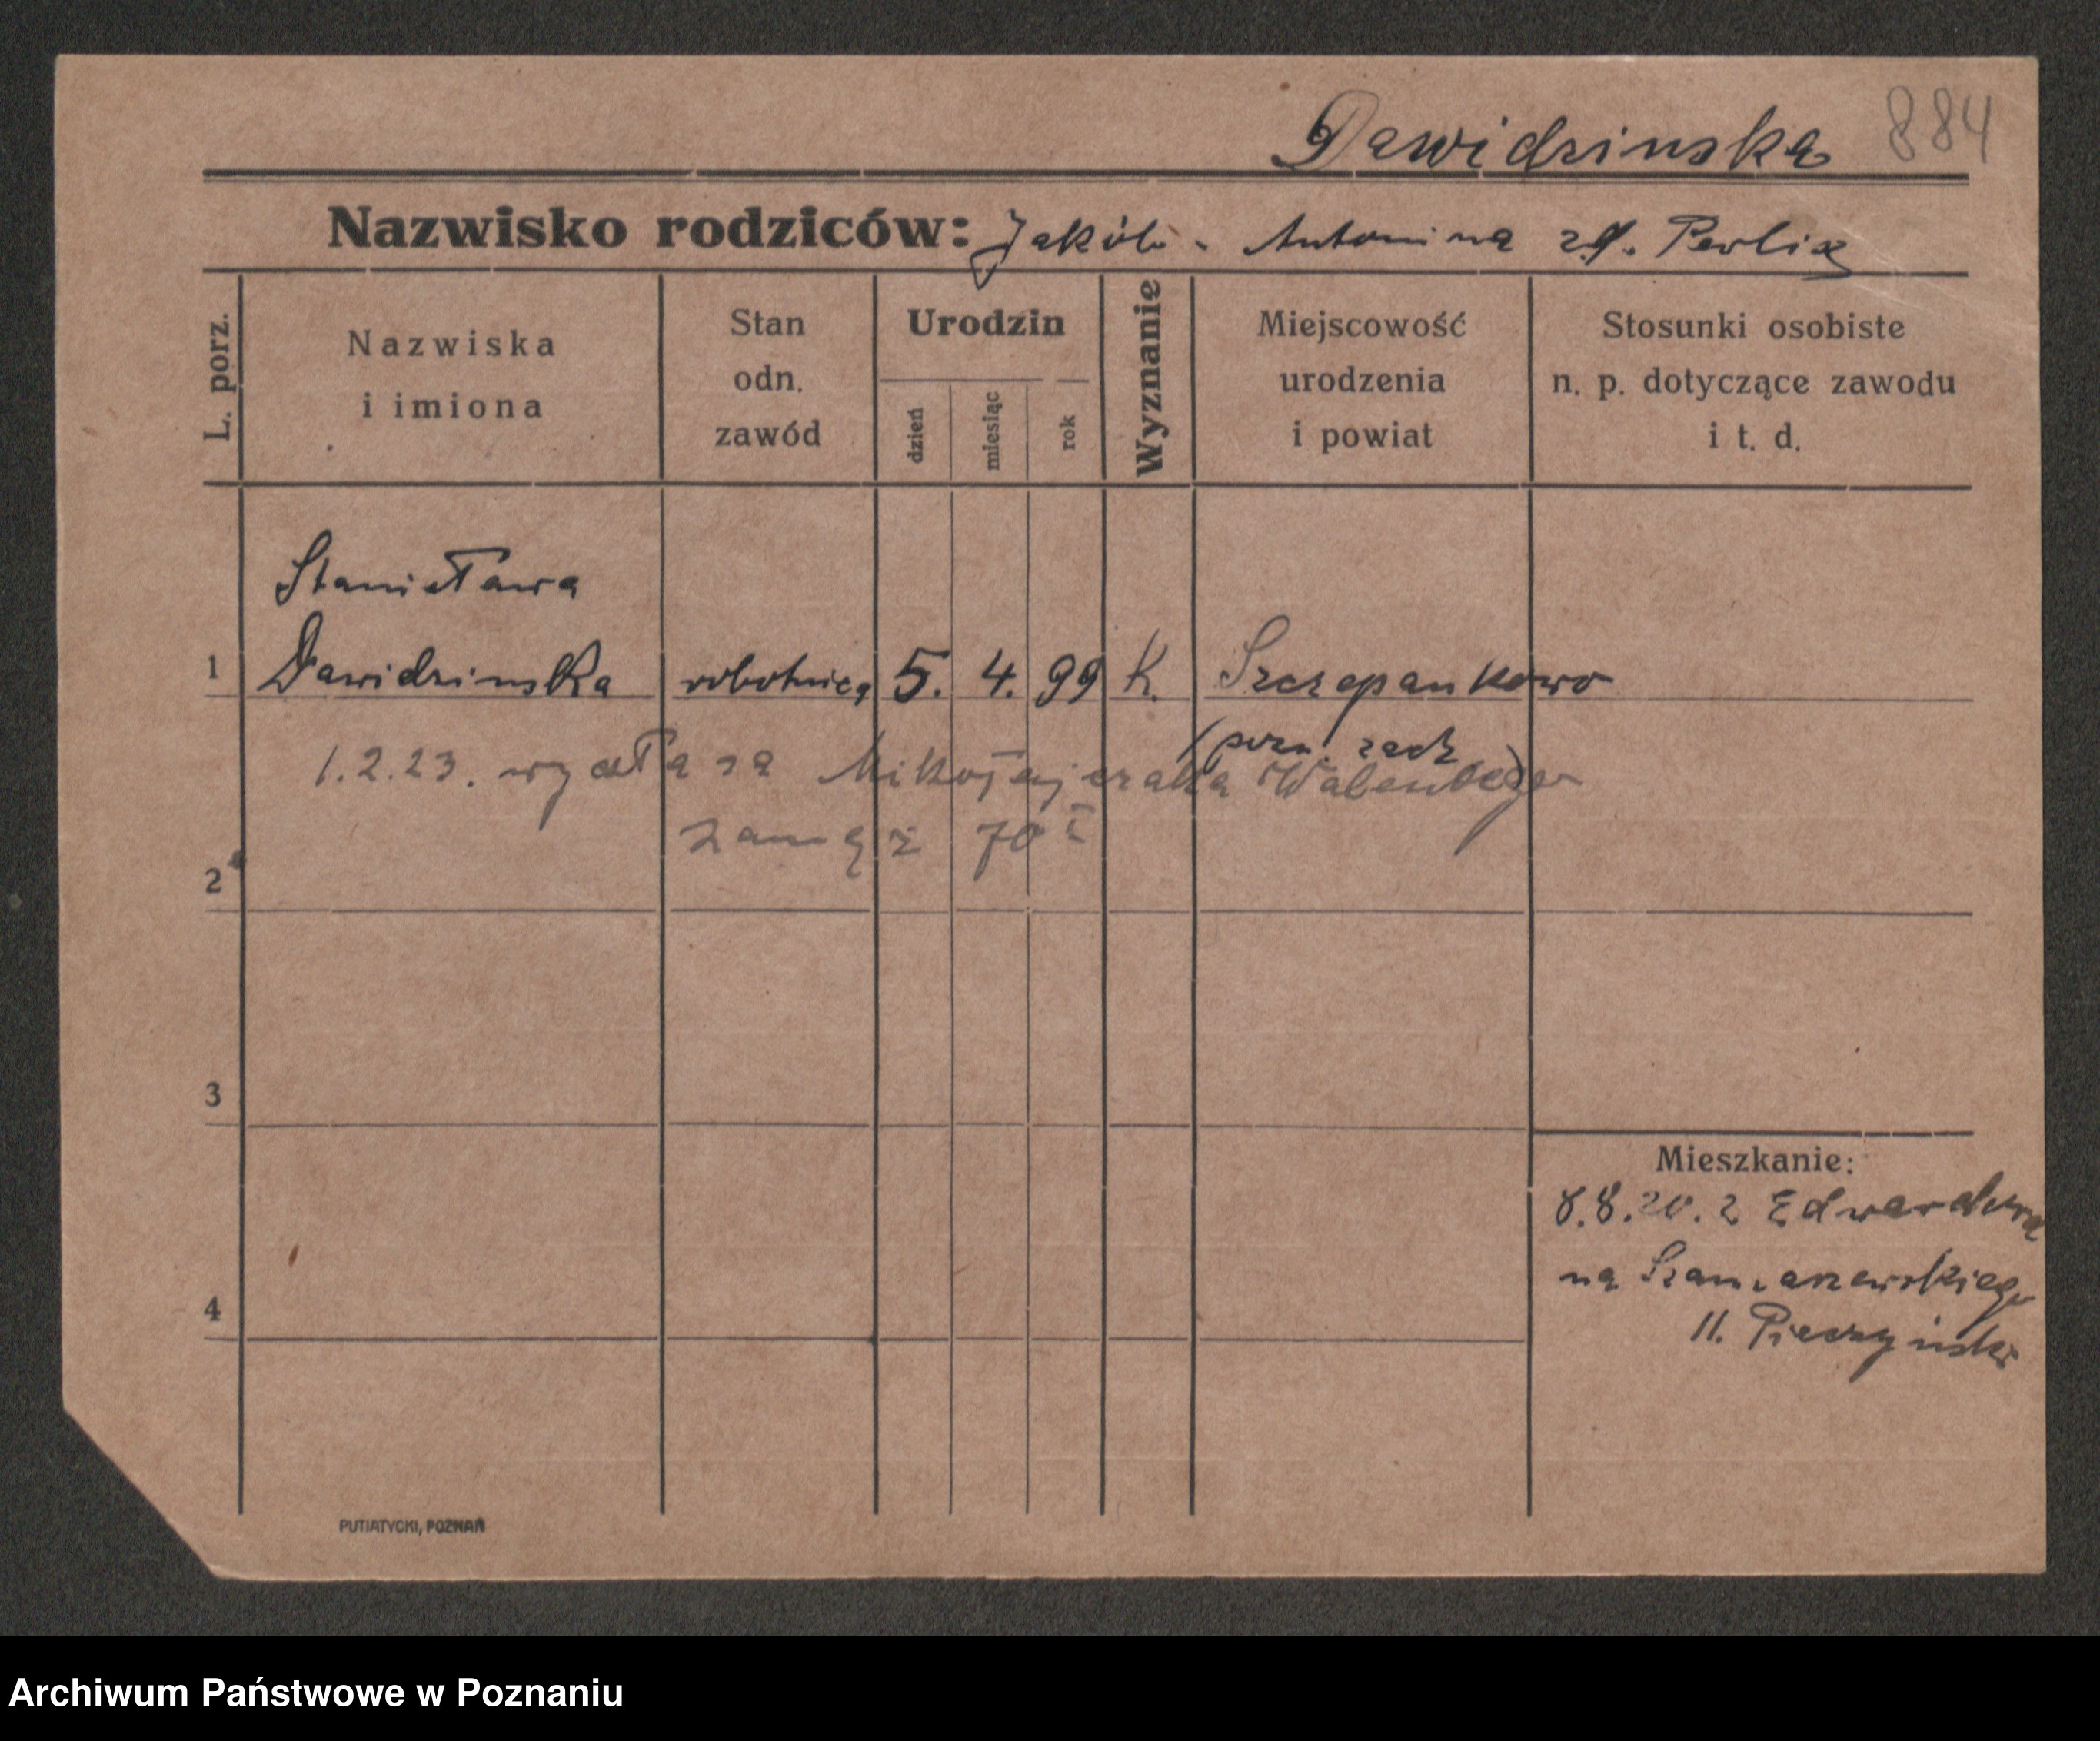 Dawidzinska 884
Nazwisko rodziców: Jakób - Antonina
L. porz.
Nazwiska
i imiona
Stan
odn.
zawód
Urodzin
dzień
miesiąc
rok
Wyznanie
Miejscowość
urodzenia
i powiat
Stosunki osobiste
n. p. dotyczące zawodu
i t. d.
Stanisława
1 Dawidzinska robotnica 5. 4. 99 K. Szczepankowo
(pozn. zach)
1.2.23. wyszła za Mikołajczaka Walentego
zamąż
2
3
4
Mieszkanie:
8.8.20. z Edwardowa
na Szamarzewskiego
11.
PUTIATYCKI, POZNAŃ
Archiwum Państwowe w Poznaniu